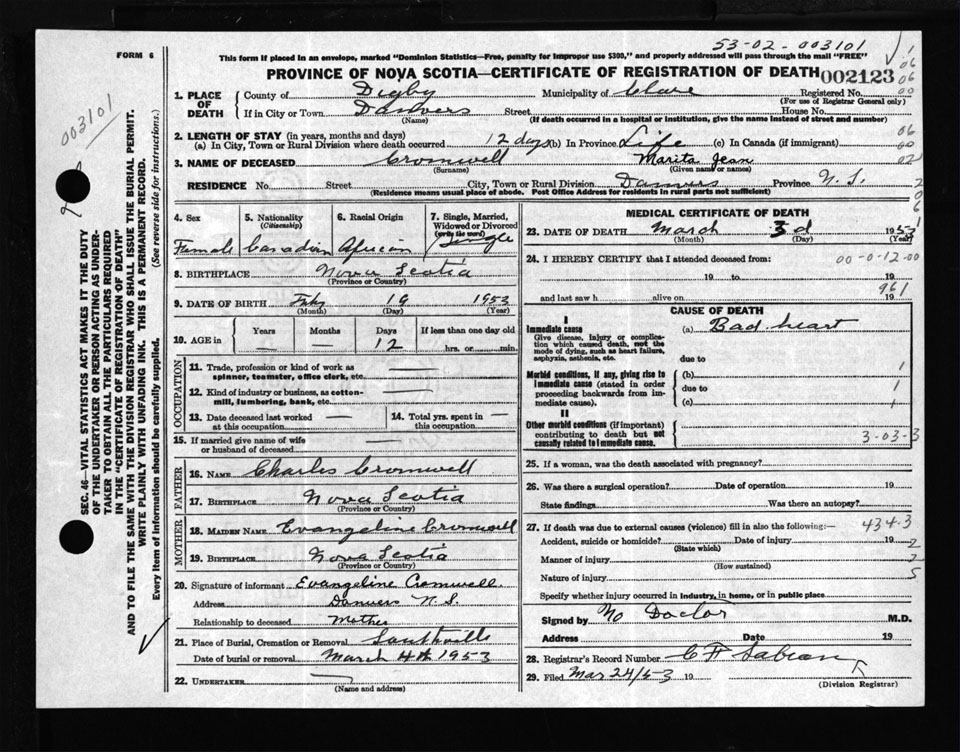 53-02-003101
FORM 6
This form if placed in an envelope, marked "Dominion Statistics—Free, penalty for improper use $300," and properly addressed will pass through the mail "FREE"
PROVINCE OF NOVA SCOTIA—CERTIFICATE OF REGISTRATION OF DEATH 002123
003101
SEC. 46—VITAL STATISTICS ACT MAKES IT THE DUTY
OF THE UNDERTAKER OR PERSON ACTING AS UNDER-
TAKER TO OBTAIN ALL THE PARTICULARS REQUIRED
IN THE "CERTIFICATE OF REGISTRATION OF DEATH"
AND TO FILE THE SAME WITH THE DIVISION REGISTRAR WHO SHALL ISSUE THE BURIAL PERMIT.
WRITE PLAINLY WITH UNFADING INK. THIS IS A PERMANENT RECORD.
Every item of information should be carefully supplied. (See reverse side for instructions.)
1. PLACE OF DEATH
County of Digby Municipality of Clare Registered No.
(For use of Registrar General only)
If in City or Town Danvers Street House No.
(Name) (If death occurred in a hospital or institution, give the name instead of street and number)
2. LENGTH OF STAY (in years, months and days)
(a) In City, Town or Rural Division where death occurred 12 days (b) In Province Life (c) In Canada (if immigrant)
3. NAME OF DECEASED Cromwell Marita Jean
(Surname) (Given name or names)
RESIDENCE No. Street City, Town or Rural Division Danvers Province N. S.
(Residence means usual place of abode. Post Office Address for residents in rural parts not sufficient)
4. Sex
Female
5. Nationality
(Citizenship)
Canadian
6. Racial Origin
African
7. Single, Married,
Widowed or Divorced
(write the word)
Single
8. BIRTHPLACE Nova Scotia
(Province or Country)
9. DATE OF BIRTH Feby 19 1953
(Month) (Day) (Year)
10. AGE in Years Months Days If less than one day old
— — 12 hrs. or min.
OCCUPATION
11. Trade, profession or kind of work as
spinner, teamster, office clerk, etc.
12. Kind of industry or business, as cotton-
mill, lumbering, bank, etc.
13. Date deceased last worked
at this occupation
14. Total yrs. spent in
this occupation
15. If married give name of wife
or husband of deceased
FATHER
16. NAME Charles Cromwell
17. BIRTHPLACE Nova Scotia
(Province or Country)
MOTHER
18. MAIDEN NAME Evangeline Cromwell
19. BIRTHPLACE Nova Scotia
(Province or Country)
20. Signature of informant Evangeline Cromwell
Address Danvers N. S.
Relationship to deceased Mother
21. Place of Burial, Cremation or Removal Southville
Date of burial or removal March 4th 1953
22. UNDERTAKER
(Name and address)
MEDICAL CERTIFICATE OF DEATH
23. DATE OF DEATH March 3d 1953
(Month) (Day) (Year)
24. I HEREBY CERTIFY that I attended deceased from:
00-0-12-00
19 to 19
961
and last saw h alive on 19
CAUSE OF DEATH
I
Immediate cause (a) Bad heart
Give disease, injury or complica-
tion which caused death, not the
mode of dying, such as heart failure,
asphyxia, asthenia, etc.
due to
Morbid conditions, if any, giving rise to
immediate cause (stated in order
proceeding backwards from im-
mediate cause).
(b) 1
due to 1
(c) 1
II
Other morbid conditions (if important)
contributing to death but not
causally related to immediate cause.
3-03-3
25. If a woman, was the death associated with pregnancy?
26. Was there a surgical operation? Date of operation 19
State findings Was there an autopsy?
27. If death was due to external causes (violence) fill in also the following:— 434-3
Accident, suicide or homicide? Date of injury 19
(State which)
Manner of injury
(How sustained)
Nature of injury
Specify whether injury occurred in industry, in home, or in public place
Signed by No Doctor M.D.
Address Date 19
28. Registrar's Record Number
29. Filed Mar 24/53 19
(Division Registrar)